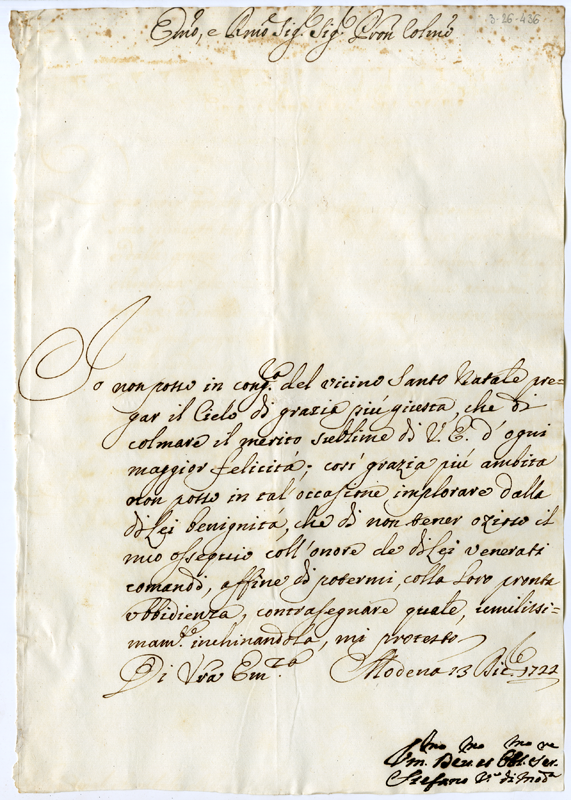 3-26-436
Emo, e Rmo Sigr. Sigr. Pron Colmo
Io non posso in congra. del vicino Santo Natale pre=
gar il Cielo di grazia più giusta, che di
colmare il merito sublime di V. E. d'ogni
maggior felicità; così grazia più ambita
non posso in tal'occasione implorare dalla
di Lei benignità, che di non tener ozioso il
mio ossequio coll'onore de di Lei venerati
comandi, affine di potermi, colla loro pronta
ubbidienza, contrasegnare quale, umilissi=
mamte. inchinandola, mi protesto
Di Vra Emza Modena 13 Dice. 1722
Vmo. Devmo et Obblmo Serve
Stefano Vo. di Moda